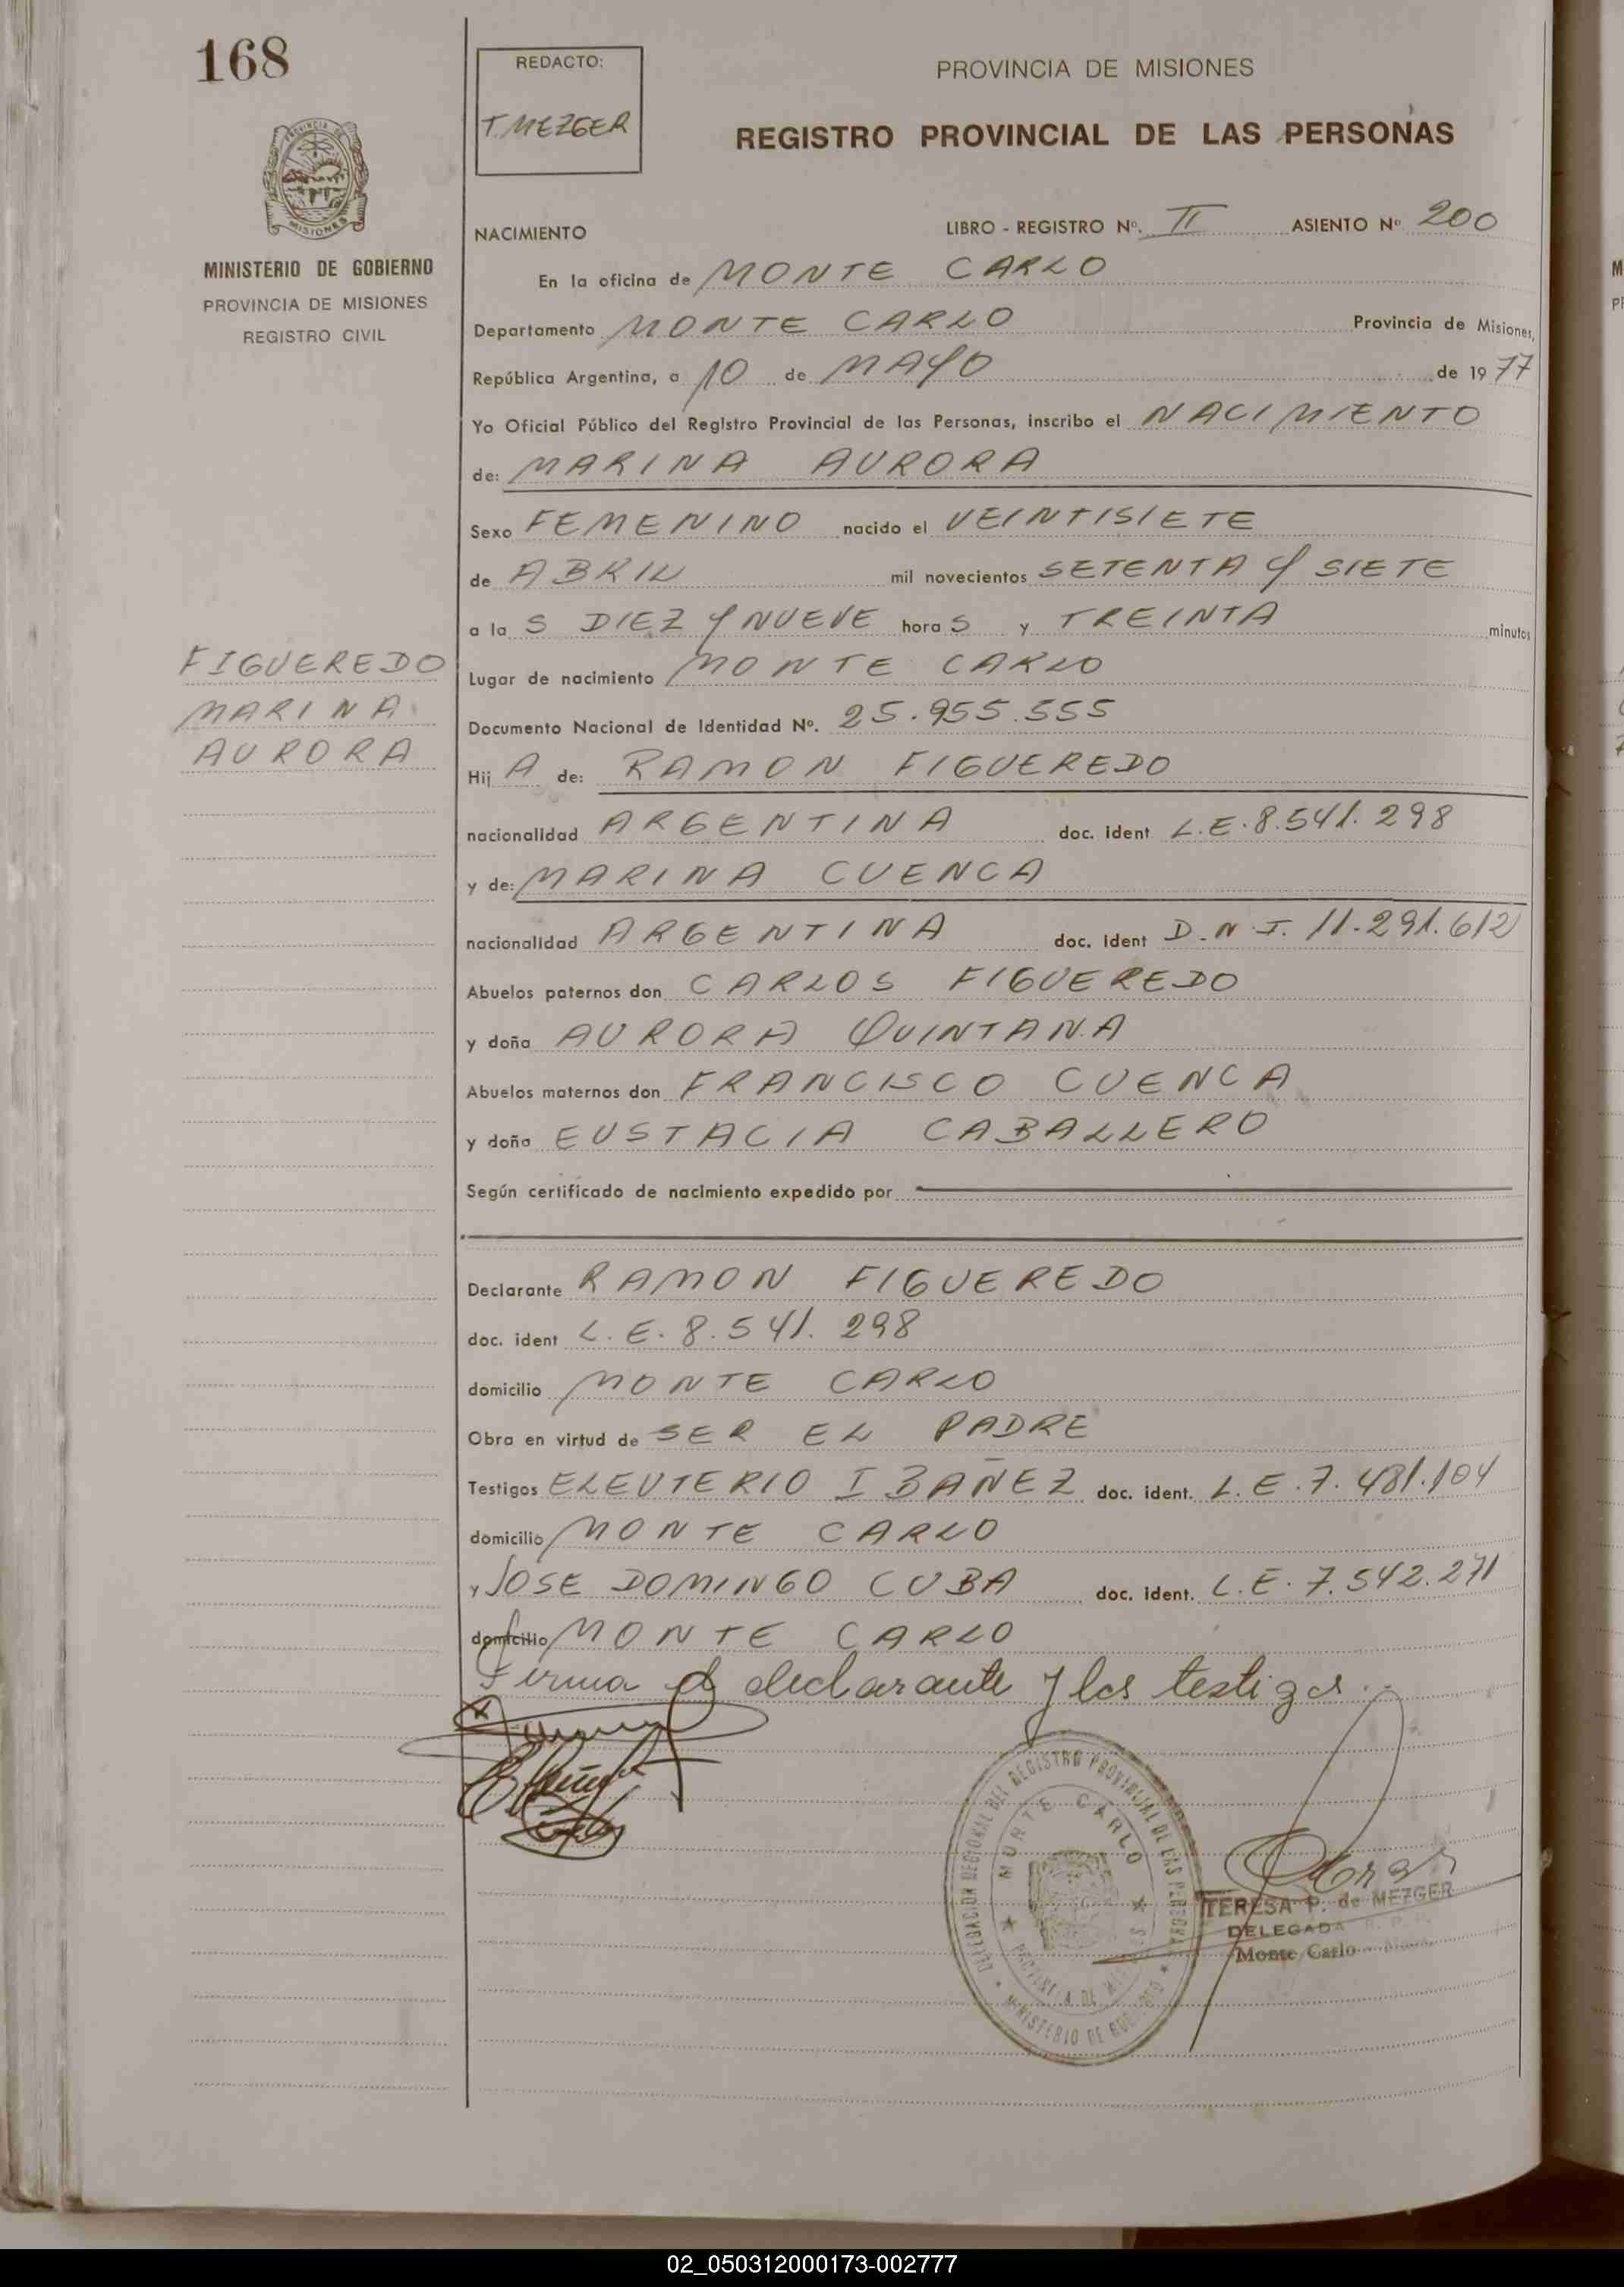 168
REDACTO:
T. MEZGER
PROVINCIA DE MISIONES
REGISTRO PROVINCIAL DE LAS PERSONAS
PROVINCIA DE
MISIONES
MINISTERIO DE GOBIERNO
PROVINCIA DE MISIONES
REGISTRO CIVIL
NACIMIENTO
LIBRO - REGISTRO Nº. II ASIENTO Nº. 200
En la oficina de MONTE CARLO
Departamento MONTE CARLO Provincia de Misiones,
República Argentina, a 10 de MAYO de 1977
Yo Oficial Público del Registro Provincial de las Personas, inscribo el NACIMIENTO
de: MARINA AURORA
Sexo FEMENINO nacido el VEINTISIETE
de ABRIL mil novecientos SETENTA Y SIETE
a la S DIEZ Y NUEVE hora S y TREINTA minutos
FIGUEREDO
MARINA
AURORA
Lugar de nacimiento MONTE CARLO
Documento Nacional de Identidad Nº. 25.955.555
Hij A de: RAMON FIGUEREDO
nacionalidad ARGENTINA doc. ident L.E. 8.541.298
y de: MARINA CUENCA
nacionalidad ARGENTINA doc. ident D.N.I. 11.291.612
Abuelos paternos don CARLOS FIGUEREDO
y doña AURORA QUINTANA
Abuelos maternos don FRANCISCO CUENCA
y doña EUSTACIA CABALLERO
Según certificado de nacimiento expedido por
Declarante RAMON FIGUEREDO
doc. ident L.E. 8.541.298
domicilio MONTE CARLO
Obra en virtud de SER EL PADRE
Testigos ELEUTERIO IBAÑEZ doc. ident. L.E. 7.481.104
domicilio MONTE CARLO
y JOSE DOMINGO CUBA doc. ident. L.E. 7.542.271
domicilio MONTE CARLO
Firma el declarante y los testigos.
DELEGACION REGIONAL DEL REGISTRO PROVINCIAL DE LAS PERSONAS
MONTE CARLO
PROVINCIA DE MISIONES
MINISTERIO DE GOBIERNO
TERESA P. de MEZGER
DELEGADA R. P. P.
Monte Carlo
02_050312000173-002777